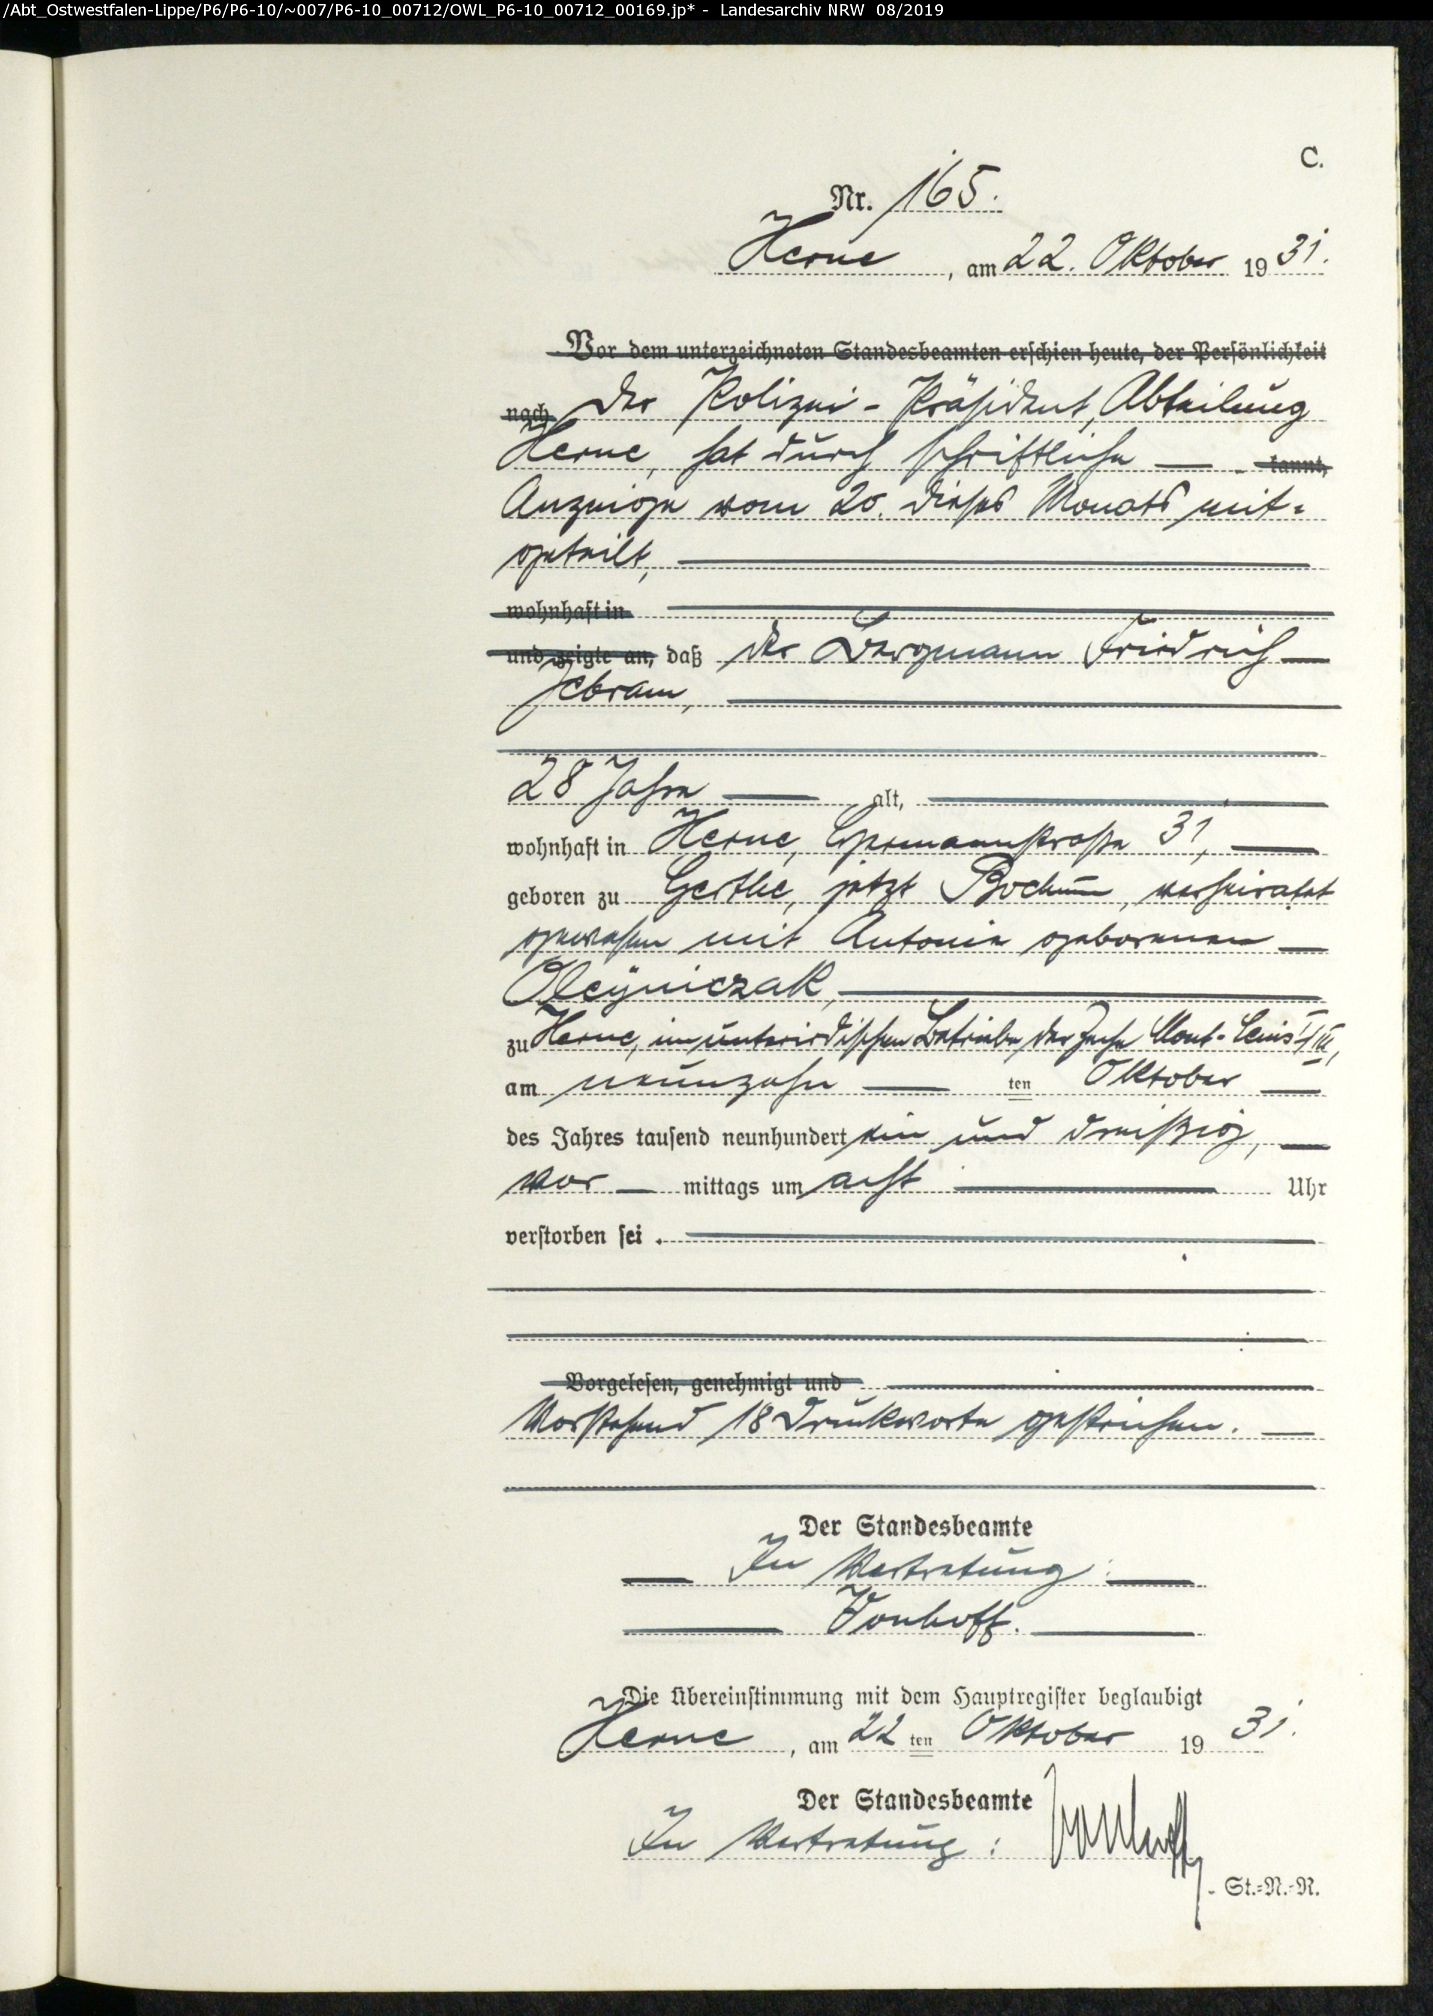 /Abt_Ostwestfalen-Lippe/P6/P6-10/~007/P6-10_00712/OWL_P6-10_00712_00169.jp* - Landesarchiv NRW 08/2019
C.
Nr. 165.
Herne, am 22. Oktober 1931.
Vor dem unterzeichneten Standesbeamten erschien heute, der Persönlichkeit
nach Der Polizei-Präsident, Abteilung
Herne, hat durch schriftliche kannt,
Anzeige vom 20. dieses Monats mit-
geteilt,
wohnhaft in
und zeigte an, daß der Bergmann Friedrich
Jebram,
28 Jahre alt,
wohnhaft in Herne, 31,
geboren zu Gerthe, jetzt Bochum, verheiratet
gewesen mit Antonie geborenen
Olejniczak,
zu Herne, im unterirdischen Betriebe der Zeche Mont-Cenis I/III,
am neunzehn ten Oktober
des Jahres tausend neunhundert ein und dreißig,
vor mittags um acht Uhr
verstorben sei.
Vorgelesen, genehmigt und
Vorstehend 18 Druckworte gestrichen.
Der Standesbeamte
In Vertretung:
Vonhoff.
Die Übereinstimmung mit dem Hauptregister beglaubigt
Herne, am 22 ten Oktober 1931.
Der Standesbeamte
In Vertretung: Vonhoff
St.-N.-R.